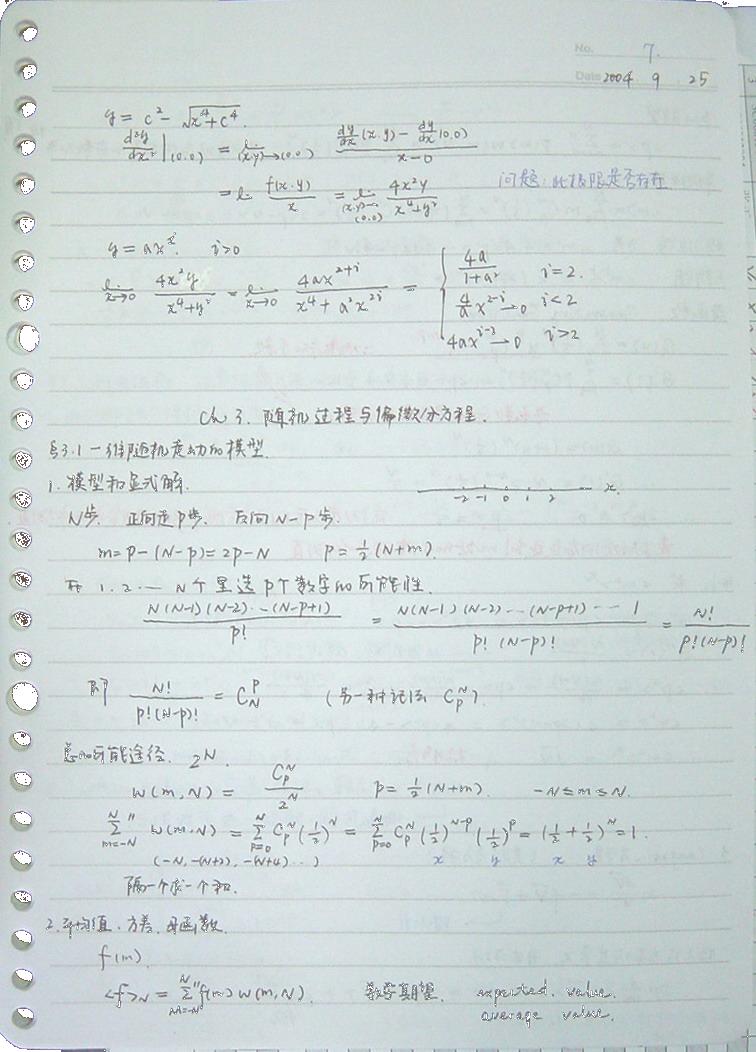 No. 7.
Date 2004. 9. 25
y = c² - √(x⁴+c⁴)
d²y/dx² |(0,0) = lim (x,y)→(0,0) (dy/dx (x,y) - dy/dx (0,0)) / (x-0)
= l f(x,y)/x = lim (x,y)→(0,0) 4x²y/(x⁴+y²) 问题:此极限是否存在
y = ax^i. i>0
lim x→0 4x²y/(x⁴+y²) = lim x→0 4ax^(2+i)/(x⁴+a²x^(2i)) = { 4a/(1+a²) i=2.
4/a x^(2-i)→0 i<2
4ax^(i-2)→0 i>2
Ch 3. 随机过程与偏微分方程.
§3.1 一维随机走动的模型.
1. 模型和显式解. -2 -1 0 1 2 x.
N步. 正向走p步. 反向N-p步.
m=p-(N-p)=2p-N p=½(N+m).
在1.2.… N个里选p个数字的可能性.
N(N-1)(N-2)…(N-p+1) / p! = N(N-1)(N-2)…(N-p+1)…1 / p!(N-p)! = N! / p!(N-p)!
即 N!/p!(N-p)! = C_N^p (另一种记法 C_p^N).
总的可能途径. 2^N.
w(m,N) = C_p^N / 2^N p=½(N+m). -N≤m≤N.
Σ''_{m=-N}^N w(m,N) = Σ_{p=0}^N C_p^N (½)^N = Σ_{p=0}^N C_p^N (½)^(N-p) (½)^p = (½+½)^N = 1.
(-N, -(N+2), -(N+4)...) x y x y
隔一个求一个和.
2. 平均值. 方差. 母函数.
f(m)
<f>_N = Σ''_{m=-N}^N f(m) w(m,N). 数学期望. expected. value.
average value.